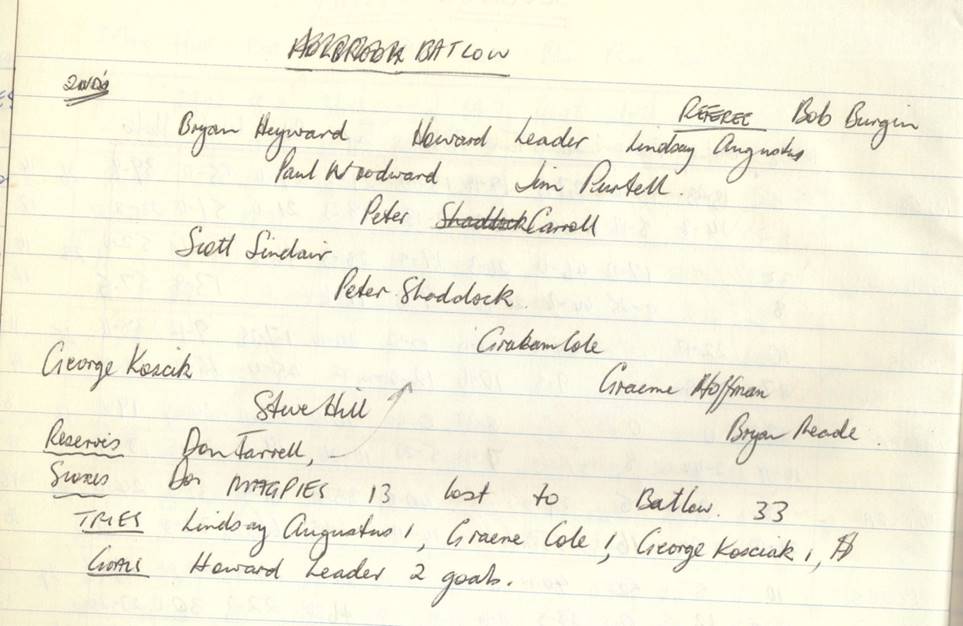 BATLOW
2ND's
REFEREE Bob Burgin
Bryan Heyward Howard Leader Lindsay Augustus
Paul Woodward Jim Purtell.
Peter Shaddock Carroll
Scott Sinclair
Peter Shaddock.
Graham Cole
George Koscik
Graeme Hoffman
Steve Hill
Bryan Reade.
Reserves Don Farrell,
Scores MAGPIES 13 lost to Batlow. 33
TRIES Lindsay Augustus 1, Graeme Cole 1, George Kosciak 1,
Goals Howard Leader 2 goals.